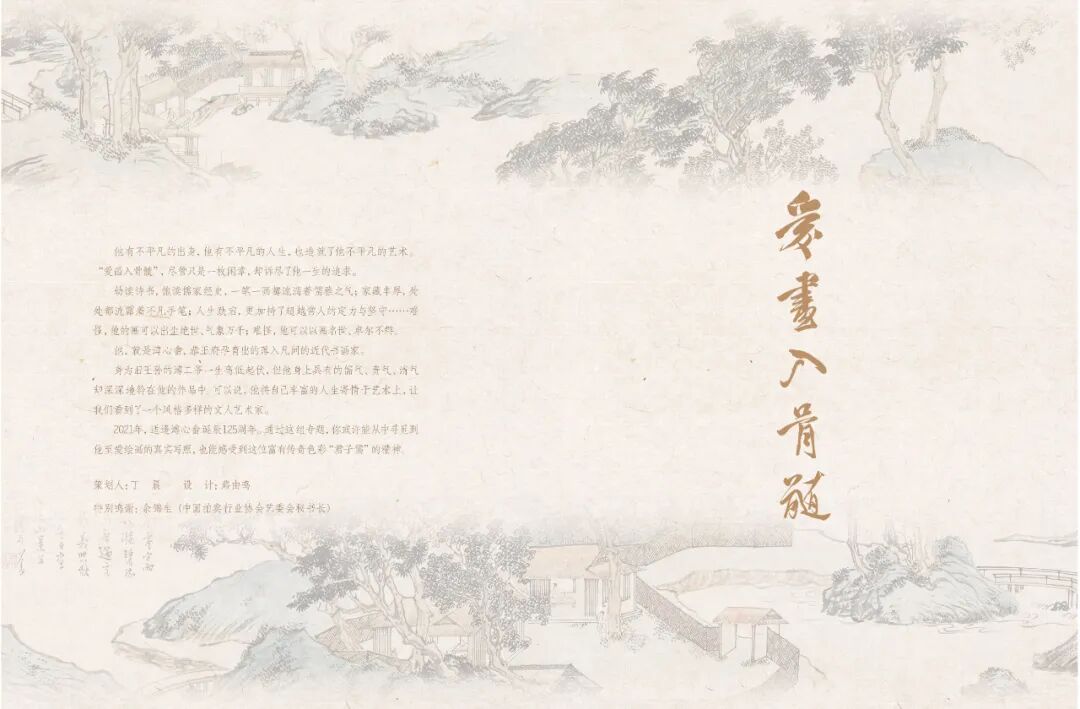 他有不平凡的出身，他有不平凡的人生，也造就了他不平凡的艺术。
“爱画入骨髓”，尽管只是一枚闲章，却诉尽了他一生的追求。
幼读诗书，饱读儒家经史，一笔一画都流露着儒雅之气；家藏丰厚，处
处都流露着不凡手笔；人生跌宕，更加持了超越常人的定力与坚守……难
怪，他的画可以出尘绝世、气象万千；难怪，他可以以画名世、卓尔不群。
他，就是溥心畬，恭王府孕育出的落入凡间的近代书画家。
身为旧王孙的溥二爷一生高低起伏，但他身上具有的儒气、贵气、逸气
却深深镌铃在他的作品中。可以说，他将自己丰富的人生寄情于艺术上，让
我们看到了一个风格多样的文人艺术家。
2021年，适逢溥心畬诞辰125周年。通过这组专题，你或许能从中寻觅到
他至爱绘画的真实写照，也能感受到这位富有传奇色彩“君子儒”的精神。
策划人：丁 晨 设 计：
特别鸣谢：余锦生（中国拍卖行业协会艺委会秘书长）
爱畫入骨髓